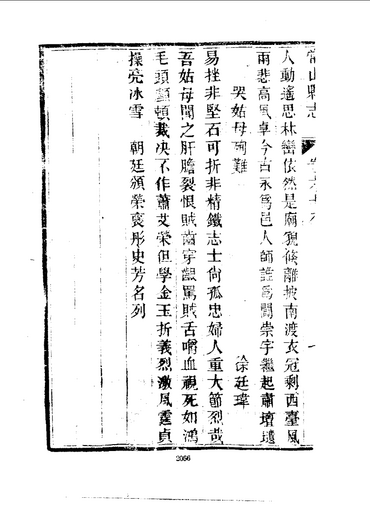 常山縣志
人動遙思林巒依然是廟貌倏離披南渡衣冠剩西臺風
雨悲高風卓今古永為邑人師誰為闢崇宇繼起肅壇壝
哭姑母殉難 徐廷瑋
易挫非堅石可折非精鐵志士尚孤忠婦人重大節烈哉
吾姑母聞之肝膽裂恨賊齒穿齦罵賊舌嚼血視死如鴻
毛頭顱頓裁決不作蕭艾榮但學金玉折義烈激風霆貞
操亮冰雪 朝廷頒榮袞彤史芳名列
2056